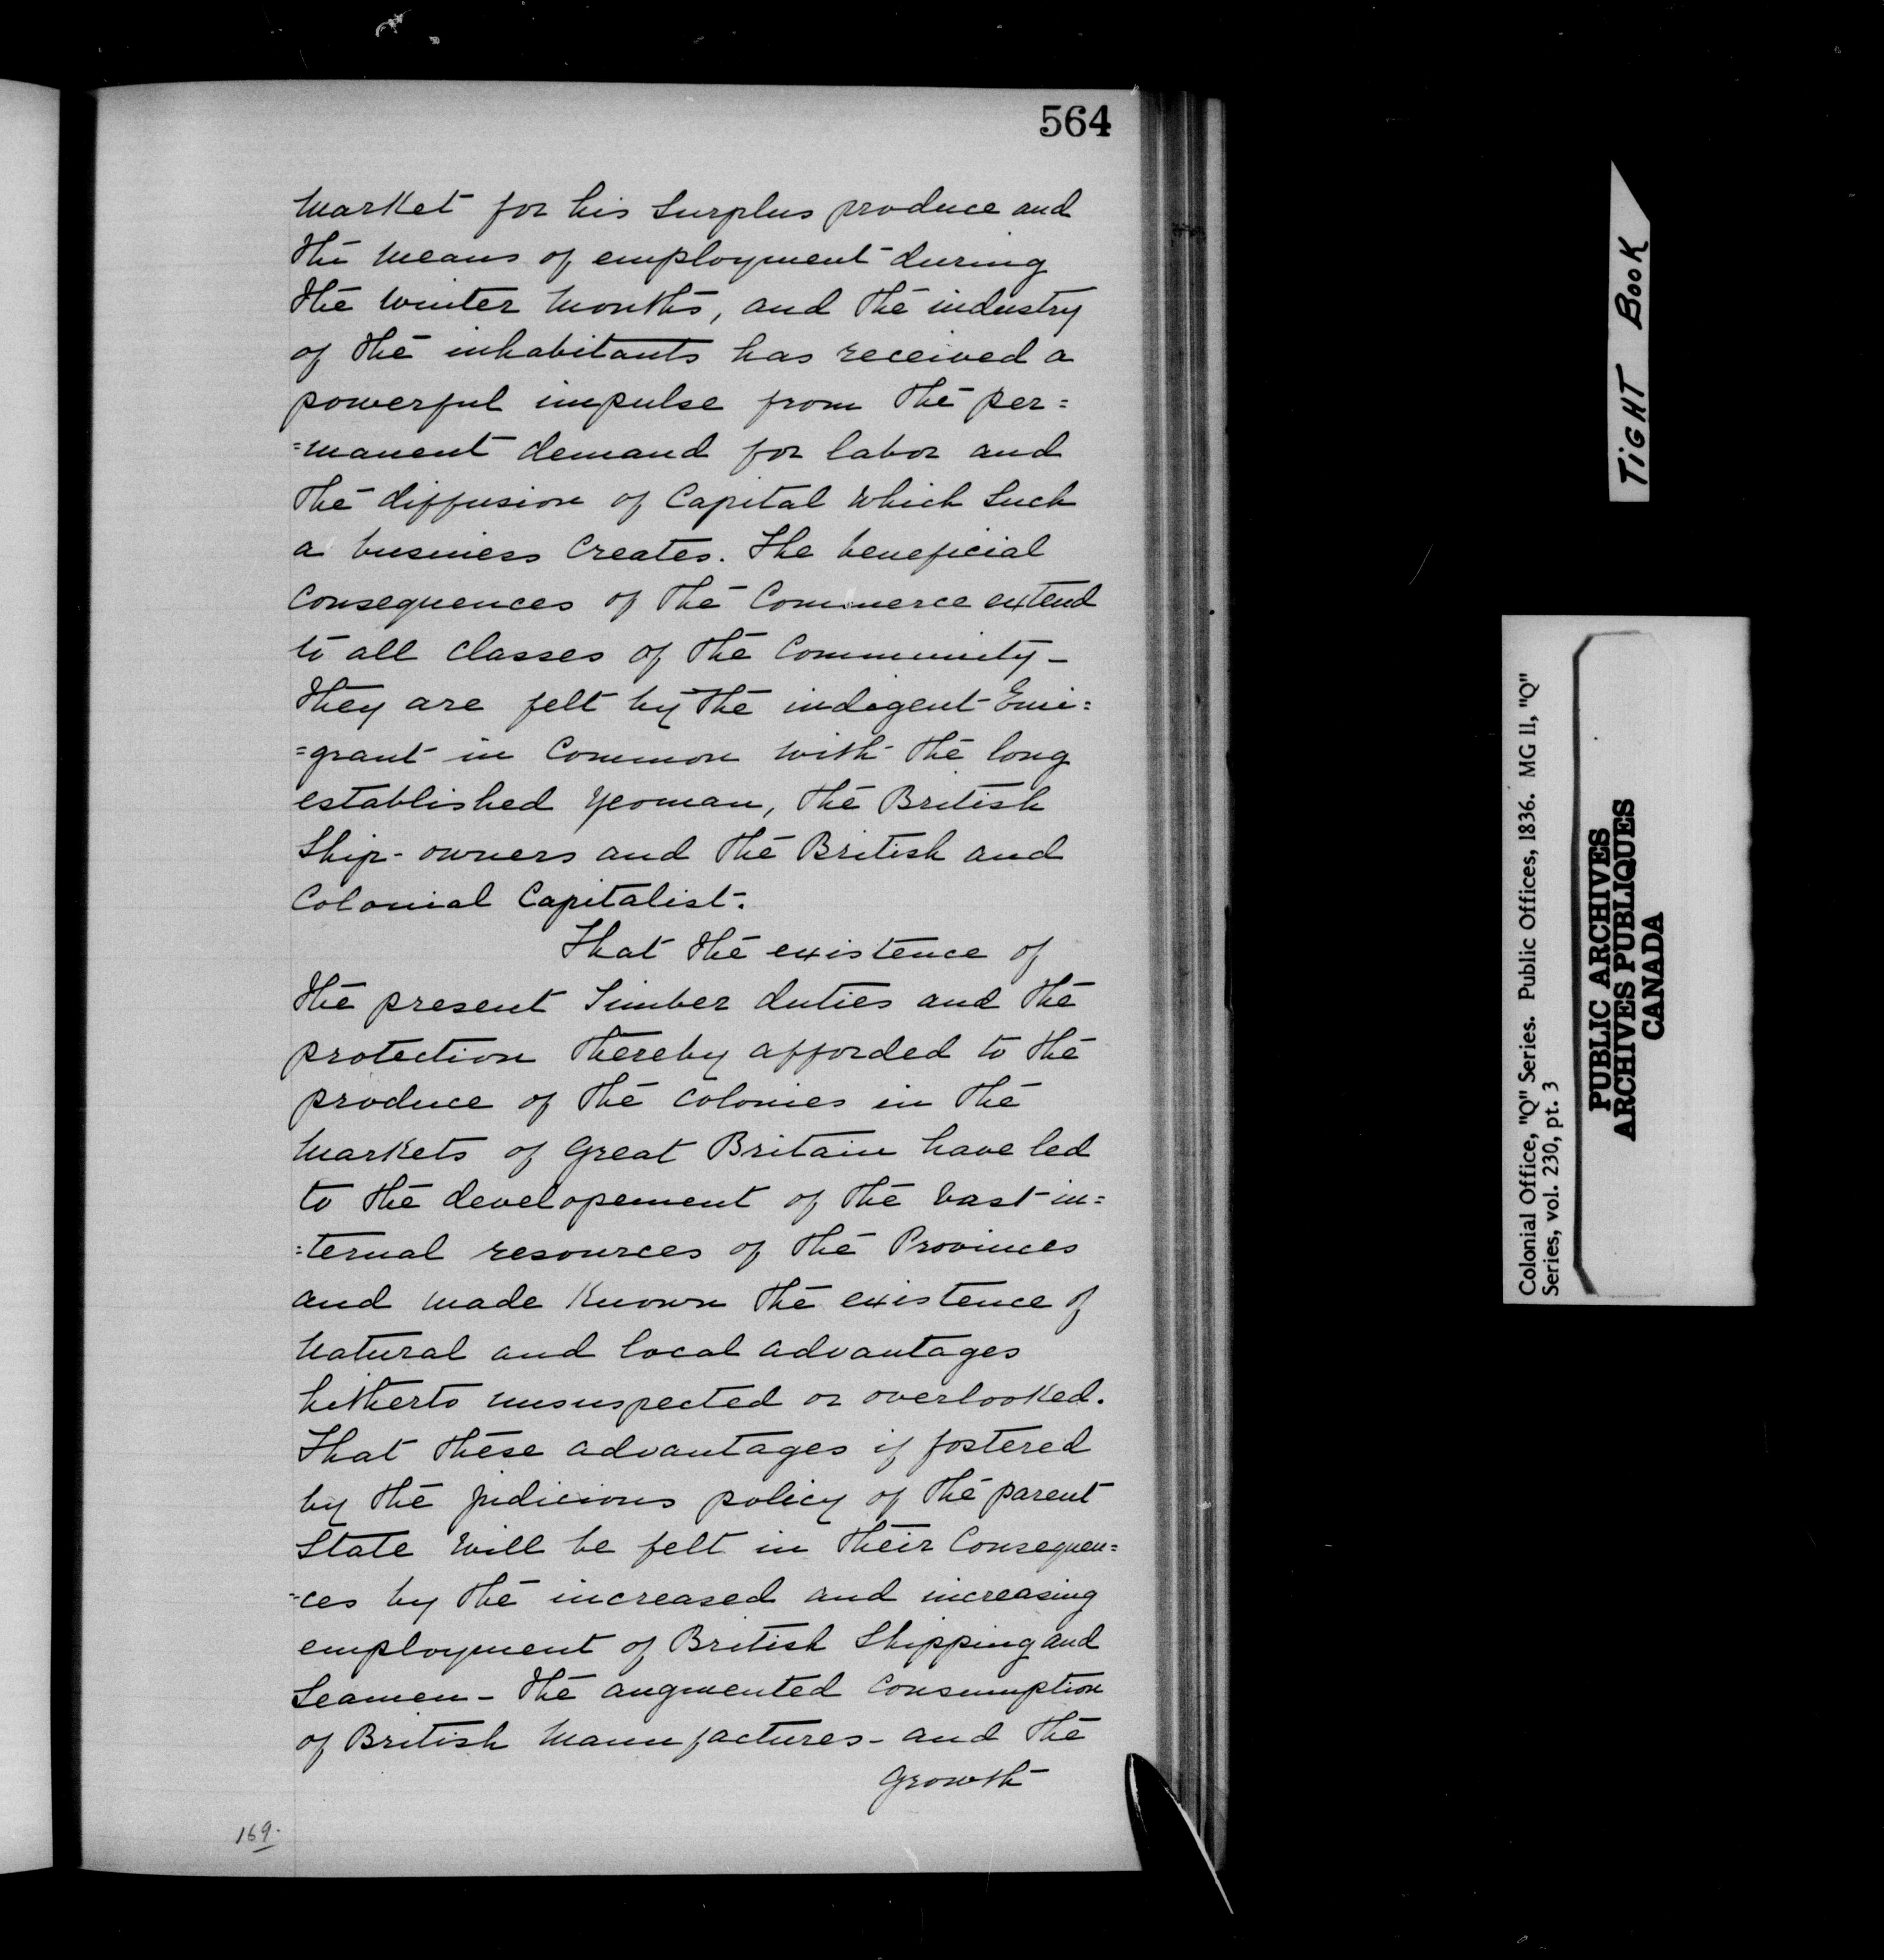 564
Market for his Surplus produce and
the means of employment during
the winter months, and the industry
of the inhabitants has received a
powerful impulse from the per=
=manent demand for labor and
the diffusion of Capital which Such
a business Creates. The beneficial
Consequences of the Commerce extend
to all classes of the Community -
they are felt by the indigent Emi=
=grant in Common with the long
established yeoman, the British
Ship-owners and the British and
Colonial Capitalist.
That the existence of
the present Timber duties and the
protection thereby afforded to the
produce of the colonies in the
Markets of Great Britain have led
to the developement of the vast in=
=ternal resources of the Provinces
and made Known the existence of
Natural and local advantages
hitherto unsuspected or overlooked.
That these advantages if fostered
by the judicious policy of the parent
State will be felt in their Consequen=
=ces by the increased and increasing
employment of British Shipping and
Seamen - the augmented Consumption
of British Manufactures - and the
growth
169.
TIGHT BOOK
Colonial Office, "Q" Series. Public Offices, 1836. MG 11, "Q"
Series, vol. 230, pt. 3
PUBLIC ARCHIVES
ARCHIVES PUBLIQUES
CANADA